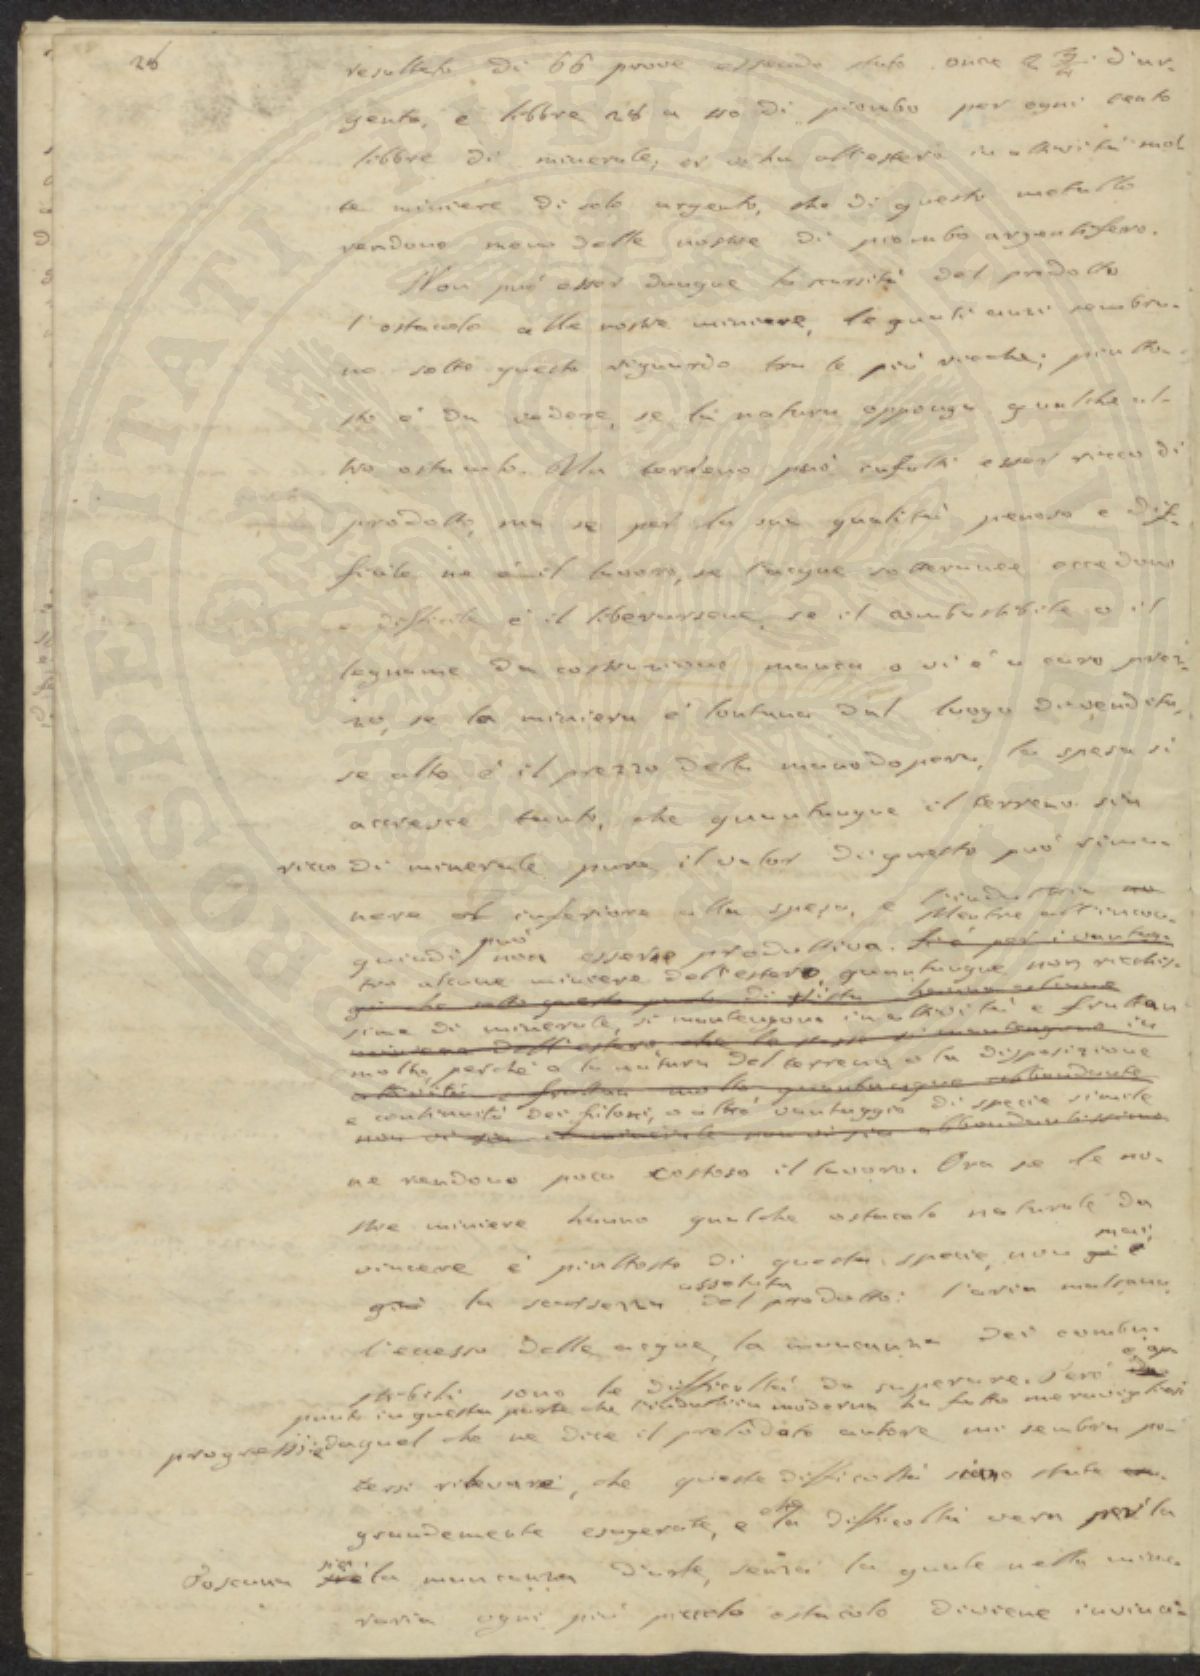 28
resultato di 66 prove essendo stato once 2 3/4 d'ar-
gento, e libbre 28 a 40 di piombo per ogni cento
libbre di minerale; or vi ha all'estero in attività mol
te miniere di solo argento, che di questo metallo
rendono meno delle nostre di piombo argentifero.
Non può esser dunque la scarsità del prodotto
l'ostacolo alle nostre miniere, le quali anzi sembra-
no sotto questo riguardo tra le più ricche; piutto-
sto è da vedere, se la natura opponga qualche al-
tro ostacolo. Un terreno può infatti esser ricco di
prodotto, ma se per la sua qualità penoso e dif-
ficile ne è il lavoro, se l'acque sotterranee eccedono
e difficile è il liberarsene, se il combustibile o il
legname da costruzione manca o vi è a caro prez-
zo, se la miniera è lontana dal luogo di vendita,
se alto è il prezzo della manodopera, la spesa si
accresce tanto, che quantunque il terreno sia
ricco di minerale pure il valor di questo può rima-
nere inferiore alla spesa, e l'industria
quindi può non esserne produttiva. Mentre all'incon-
tro alcune miniere dell'estero, quantunque non ricchis-
sime di minerale, si mantengono in attività e fruttan
molto, perchè o la natura del terreno, o la disposizione
e continuità dei filoni, o altro vantaggio di specie simile
ne rendono poco costoso il lavoro. Ora se le no-
stre miniere hanno qualche ostacolo naturale da
vincere è piuttosto di questa specie, non mai
la scarsezza assoluta del prodotto: l'aria malsana,
l'eccesso delle acque, la mancanza dei combu-
stibili sono le difficoltà da superare. Però
punto in questa parte che l'industria moderna ha fatto maravigliosi
progressi; e da quel che ne dice il prelodato autore mi sembra po-
tersi rilevare, che queste difficoltà siano state
grandemente esagerate, e che la difficoltà vera per la
Toscana sia la mancanza d'arte, senza la quale nella mine-
raria ogni più piccolo ostacolo diviene invinci-